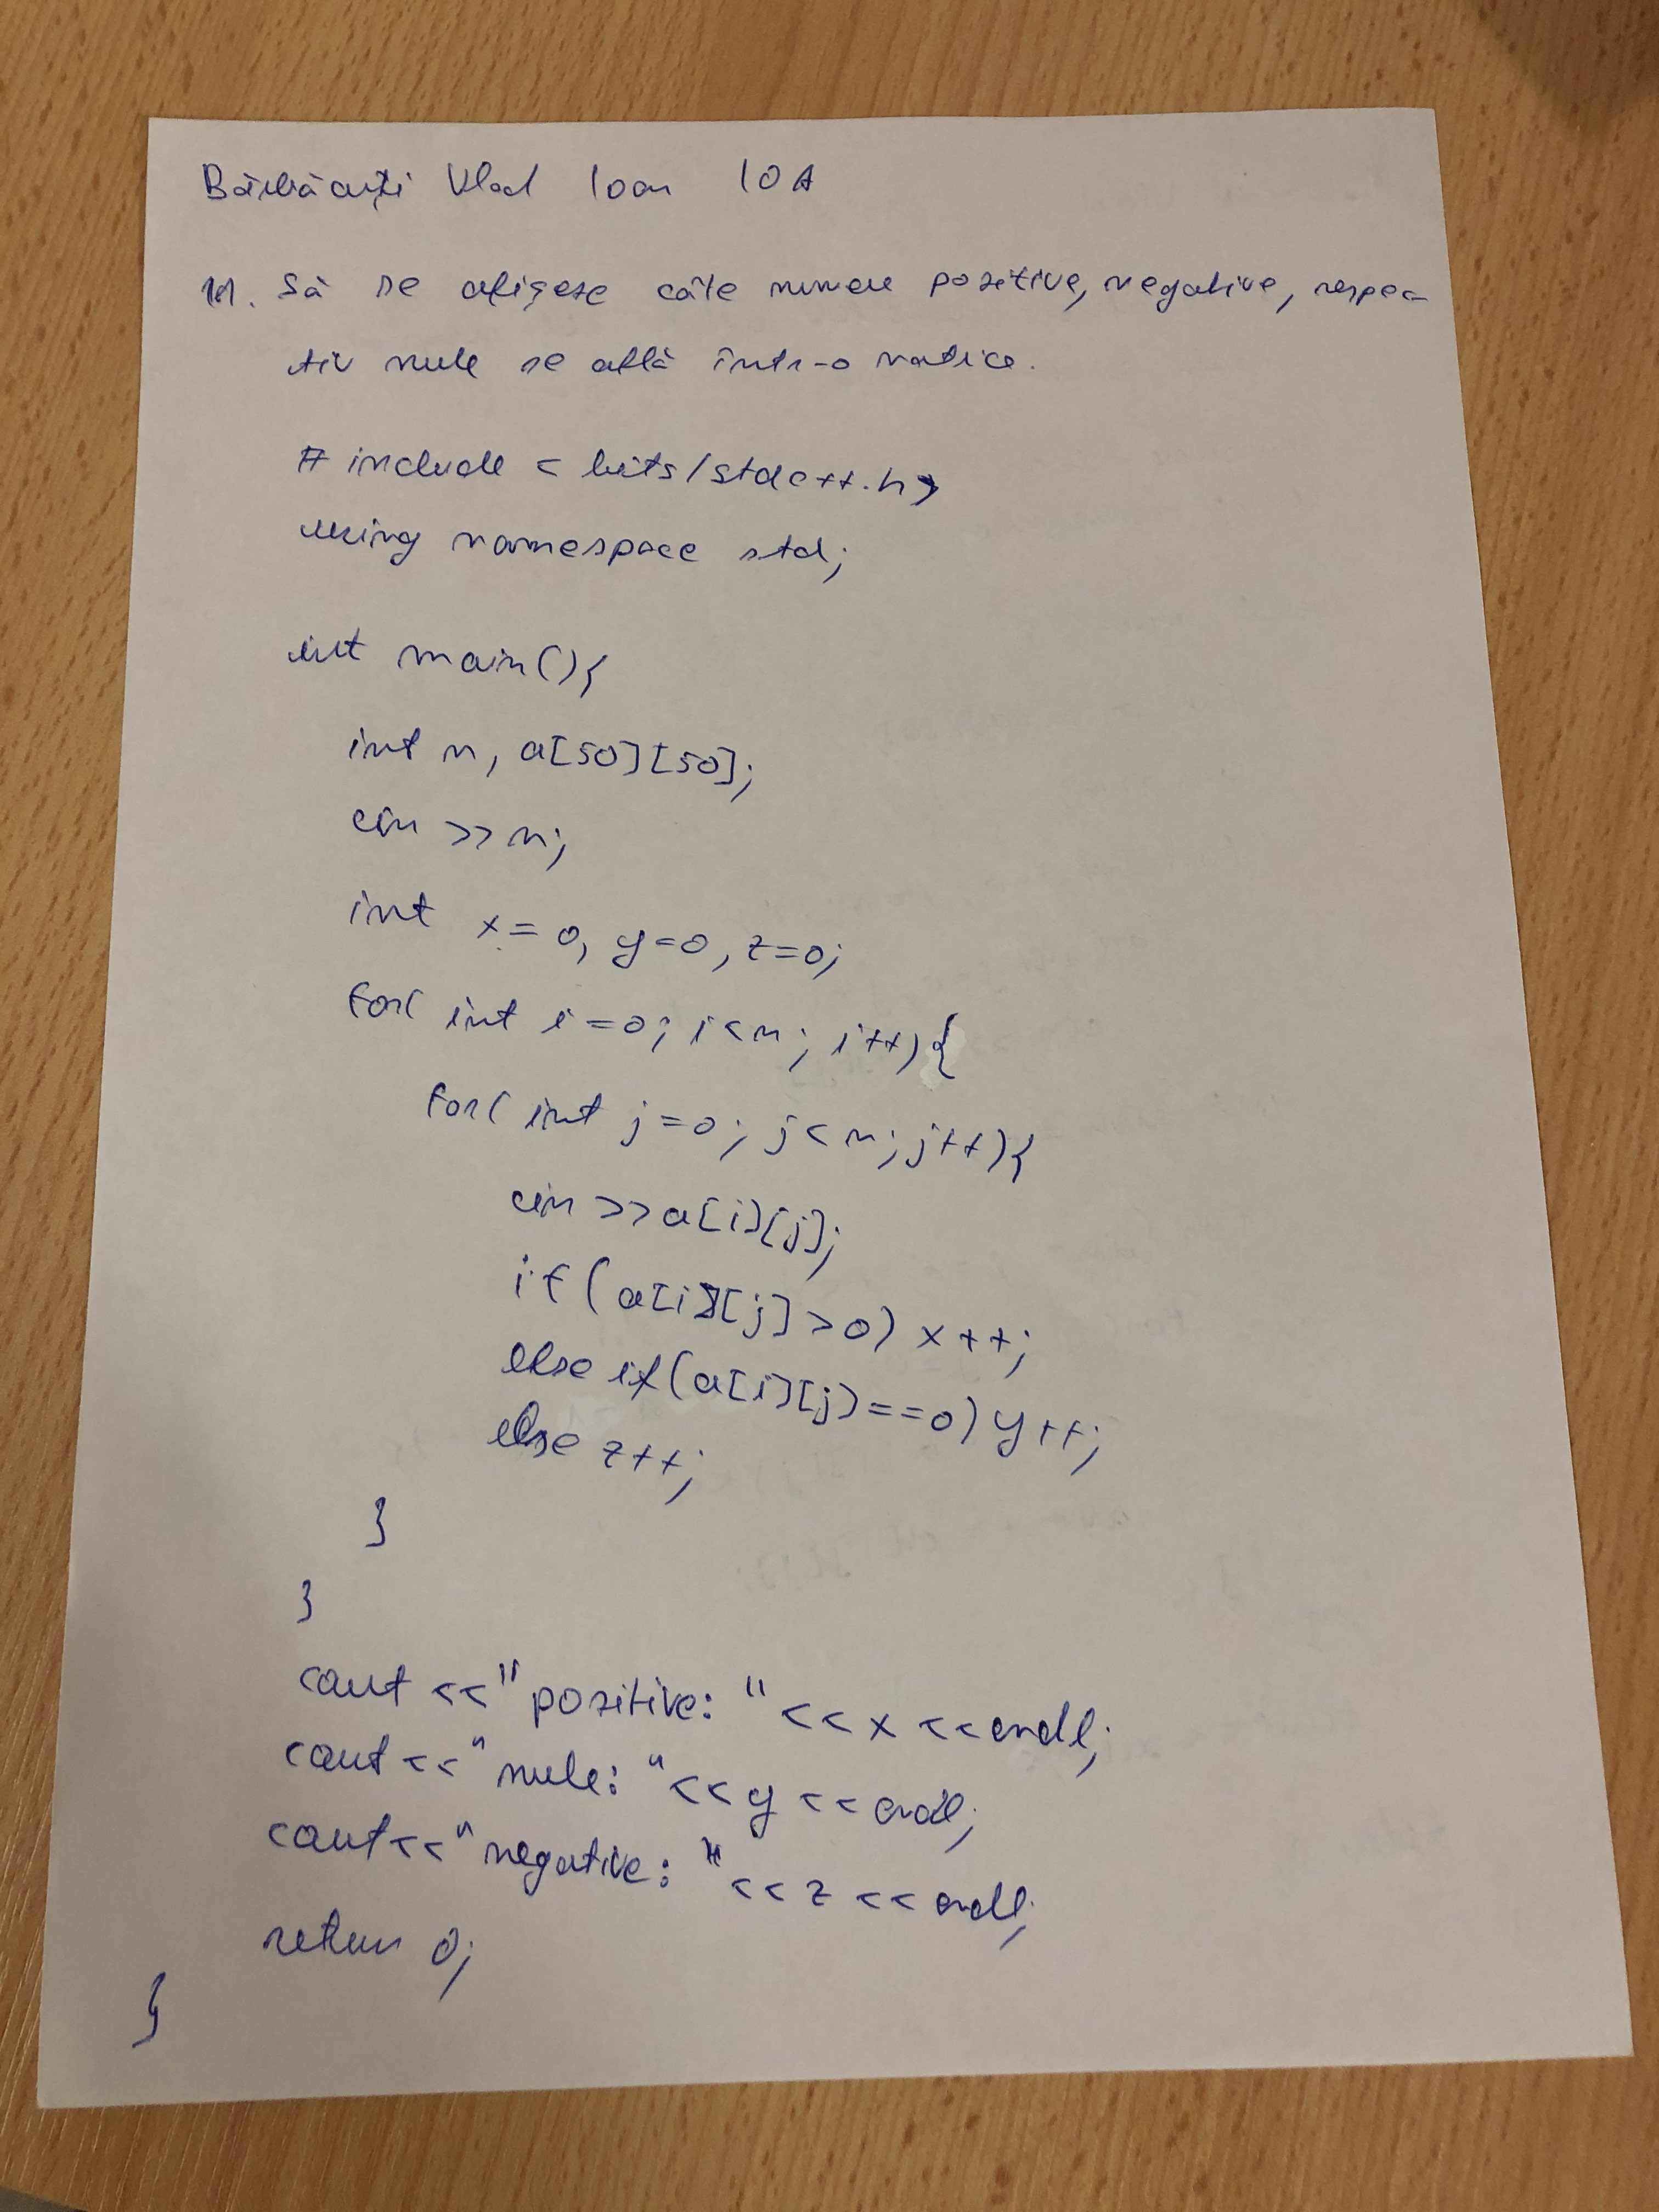 Vlad Ioan 10A
11. Să se afișeze câte numere pozitive, negative, respec-
tiv nule se află într-o matrice.
# include < bits/stdc++.h>
using namespace std;
int main(){
int n, a[50][50];
cin >> n;
int x = 0, y=0, z=0;
for( int i=0; i<n; i++){
for( int j=0; j<n; j++){
cin >>a[i][j];
if (a[i][j]>0) x++;
else if(a[i][j]==0) y++;
else z++;
}
}
cout <<"pozitive: "<<x <<endl;
cout <<"nule: "<<y <<endl;
cout<<"negative: "<<z <<endl;
return 0;
}